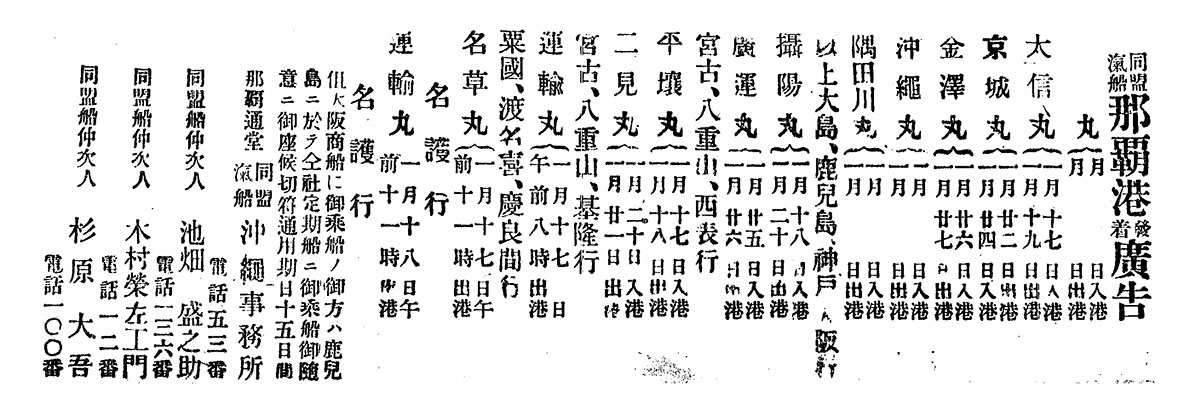 同盟滊船那覇港發着廣告
丸 月 日入港 月 日出港
大信丸 一月十七日入港 一月十九日出港
京城丸 一月廿二日入港 一月廿四日出港
金澤丸 一月廿六日入港 一月廿七日出港
沖繩丸 一月 日入港 一月 日出港
隅田川丸 一月 日入港 一月 日出港
以上大島、鹿兒島、神戸、大阪行
攝陽丸 一月十八日入港 一月二十日出港
廣運丸 一月廿五日入港 一月廿六日出港
宮古、八重山、西表行
平壤丸 一月十七日入港 一月十八日出港
二見丸 一月二十日入港 一月 日出港
宮古、八重山、基隆行
運輸丸 一月十七日午前八時出港
粟國、渡名喜、慶良間行
名草丸 一月十七日午前十一時出港
名護行
運輸丸 一月十八日午前十一時出港
名護行
但大阪商船に御乘船ノ御方ハ鹿兒
島ニ於テ仝社定期船ニ御乘船御隨
意ニ御座候切符通用期日十五日間
那覇通堂 同盟滊船 沖繩事務所
電話五三番
同盟船仲次人 池畑盛之助
電話一三六番
同盟船仲次人 木村榮左工門
電話一一二番
同盟船仲次人 杉原大吾
電話一〇〇番